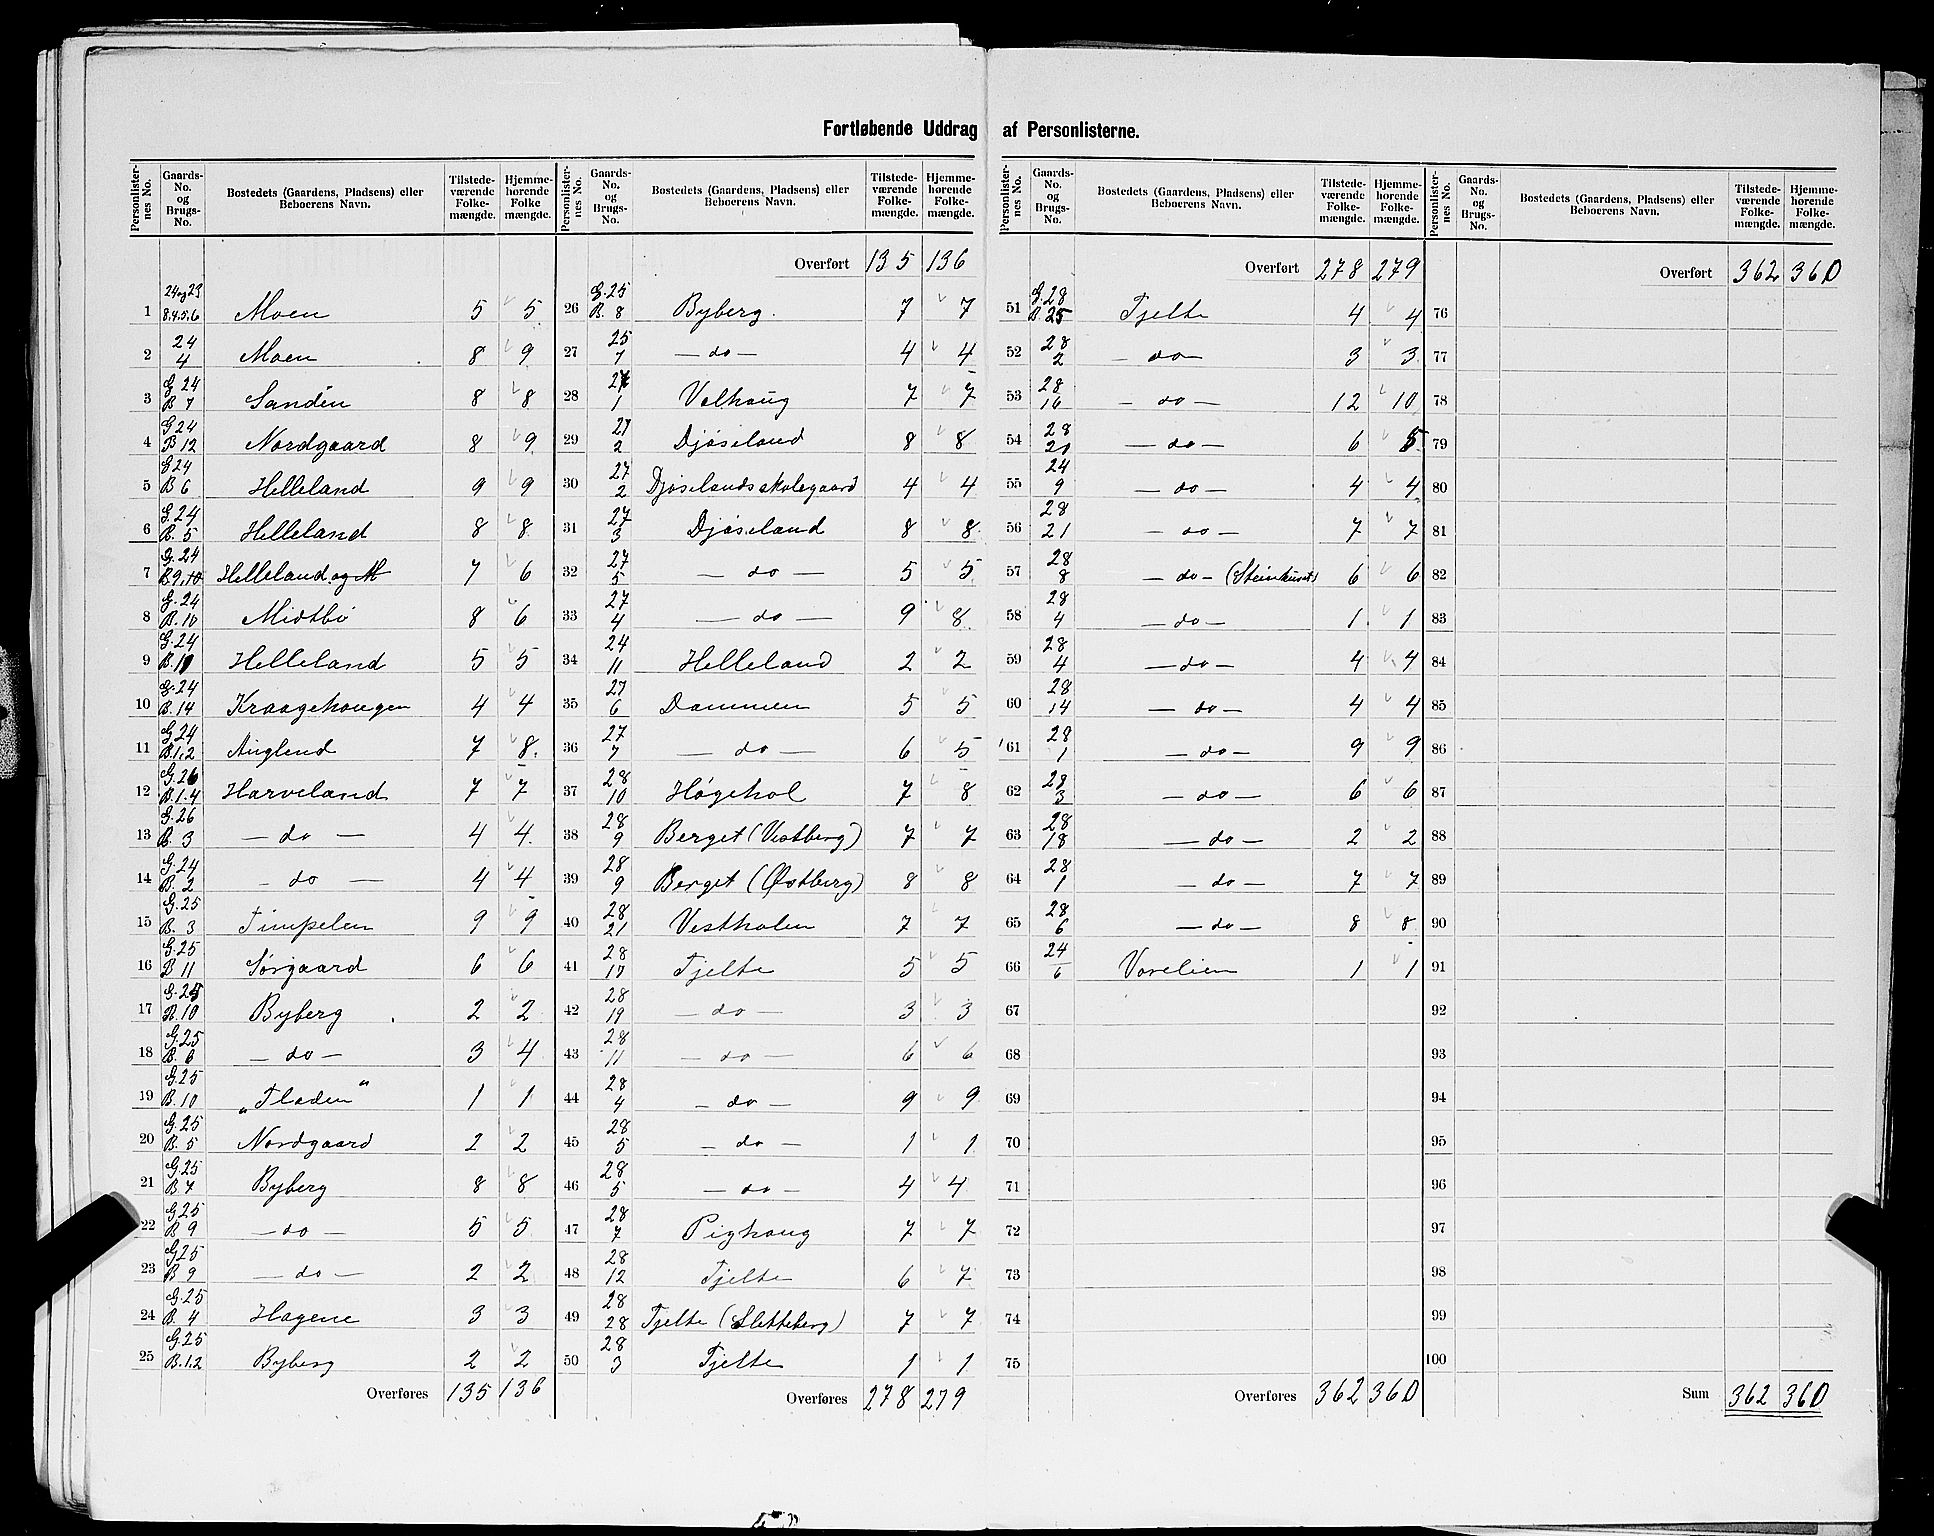 Fortløbende Uddrag af Personlisterne.
Personlisternes No. | Gaards-No. og Brugs-No. | Bostedets (Gaardens, Pladsens) eller Beboerens Navn. | Tilstedeværende Folkemængde. | Hjemmehørende Folkemængde.
1 | 24 og 23 8,4,5,6 | Moen | 5 | 5
2 | 24 4 | Moen | 8 | 9
3 | G 24 B 7 | Sanden | 8 | 8
4 | G 24 B 12 | Nordgaard | 8 | 9
5 | G 24 B 6 | Helleland | 9 | 9
6 | G. 24 B. 5 | Helleland | 8 | 8
7 | G. 24 B 9, 10 | Helleland og M | 7 | 6
8 | G. 24 B. 16 | Midtbö | 8 | 6
9 | G. 24 B. 11 | Helleland | 5 | 5
10 | G. 24 B. 14 | Kraagehaugen | 4 | 4
11 | G 24 B. 1, 2 | Auglend | 7 | 8
12 | G. 26 B. 1. 4 | Harveland | 7 | 7
13 | G. 26 B. 3 | — do — | 4 | 4
14 | G. 24 B. 2 | — do — | 4 | 4
15 | G. 25 B. 3 | Timpelen | 9 | 9
16 | G. 25 B 11 | Sørgaard | 6 | 6
17 | G. 25 B. 10 | Byberg | 2 | 2
18 | G. 25 B. 6 | — do — | 3 | 4
19 | G. 25 B. 10 | „Fladen“ | 1 | 1
20 | G. 25 B. 5 | Nordgaard | 2 | 2
21 | G. 25 B 7 | Byberg | 8 | 8
22 | G 25 B 9 | — do — | 5 | 5
23 | G 25 B 9 | — do — | 2 | 2
24 | G. 25 B. 4 | Hagene | 3 | 3
25 | G. 25 B. 1. 2 | Byberg | 2 | 2
Overføres 135 136
Personlisternes No. | Gaards-No. og Brugs-No. | Bostedets (Gaardens, Pladsens) eller Beboerens Navn. | Tilstedeværende Folkemængde. | Hjemmehørende Folkemængde.
Overført 135 136
26 | G. 25 B. 8 | Byberg. | 7 | 7
27 | 25 7 | — do — | 4 | 4
28 | 27 1 | Valhaug | 7 | 7
29 | 27 2 | Djöseland | 8 | 8
30 | 27 2 | Djöselands skolegaard | 4 | 4
31 | 27 3 | Djöseland | 8 | 8
32 | 27 5 | — do — | 5 | 5
33 | 27 4 | — do — | 9 | 8
34 | 24 11 | Helleland | 2 | 2
35 | 27 6 | Dammen | 5 | 5
36 | 27 7 | — do — | 6 | 5
37 | 28 10 | Høgehol | 7 | 8
38 | 28 9 | Berget (Vestberg) | 7 | 7
39 | 28 9 | Berget (Østberg) | 8 | 8
40 | 28 21 | Vestholen | 7 | 7
41 | 28 17 | Tjelte | 5 | 5
42 | 28 19 | — do — | 3 | 3
43 | 28 11 | — do — | 6 | 6
44 | 28 4 | — do — | 9 | 9
45 | 28 5 | — do — | 1 | 1
46 | 28 5 | — do — | 4 | 4
47 | 28 7 | Pighaug | 7 | 7
48 | 28 12 | Tjelte | 6 | 7
49 | 28 28 | Tjelte (Sletteberg) | 7 | 7
50 | 28 3 | Tjelte | 1 | 1
Overføres 278 279
Personlisternes No. | Gaards-No. og Brugs-No. | Bostedets (Gaardens, Pladsens) eller Beboerens Navn. | Tilstedeværende Folkemængde. | Hjemmehørende Folkemængde.
Overført 278 279
51 | G. 28 B. 25 | Tjelte | 4 | 4
52 | 28 2 | — do — | 3 | 3
53 | 28 16 | — do — | 12 | 10
54 | 28 20 | — do — | 6 | 5
55 | 24 9 | — do — | 4 | 4
56 | 28 21 | — do — | 7 | 7
57 | 28 8 | — do — (Steinhuset) | 6 | 6
58 | 28 4 | — do — | 1 | 1
59 | 28 4 | — do — | 4 | 4
60 | 28 14 | — do — | 4 | 4
61 | 28 1 | — do — | 9 | 9
62 | 28 3 | — do — | 6 | 6
63 | 28 18 | — do — | 2 | 2
64 | 28 1 | — do — | 7 | 7
65 | 28 6 | — do — | 8 | 8
66 | 24 6 | Vorelien | 1 | 1
67
68
69
70
71
72
73
74
75
Overføres 362 360
Personlisternes No. | Gaards-No. og Brugs-No. | Bostedets (Gaardens, Pladsens) eller Beboerens Navn. | Tilstedeværende Folkemængde. | Hjemmehørende Folkemængde.
Overført 362 360
76
77
78
79
80
81
82
83
84
85
86
87
88
89
90
91
92
93
94
95
96
97
98
99
100
Sum 362 360